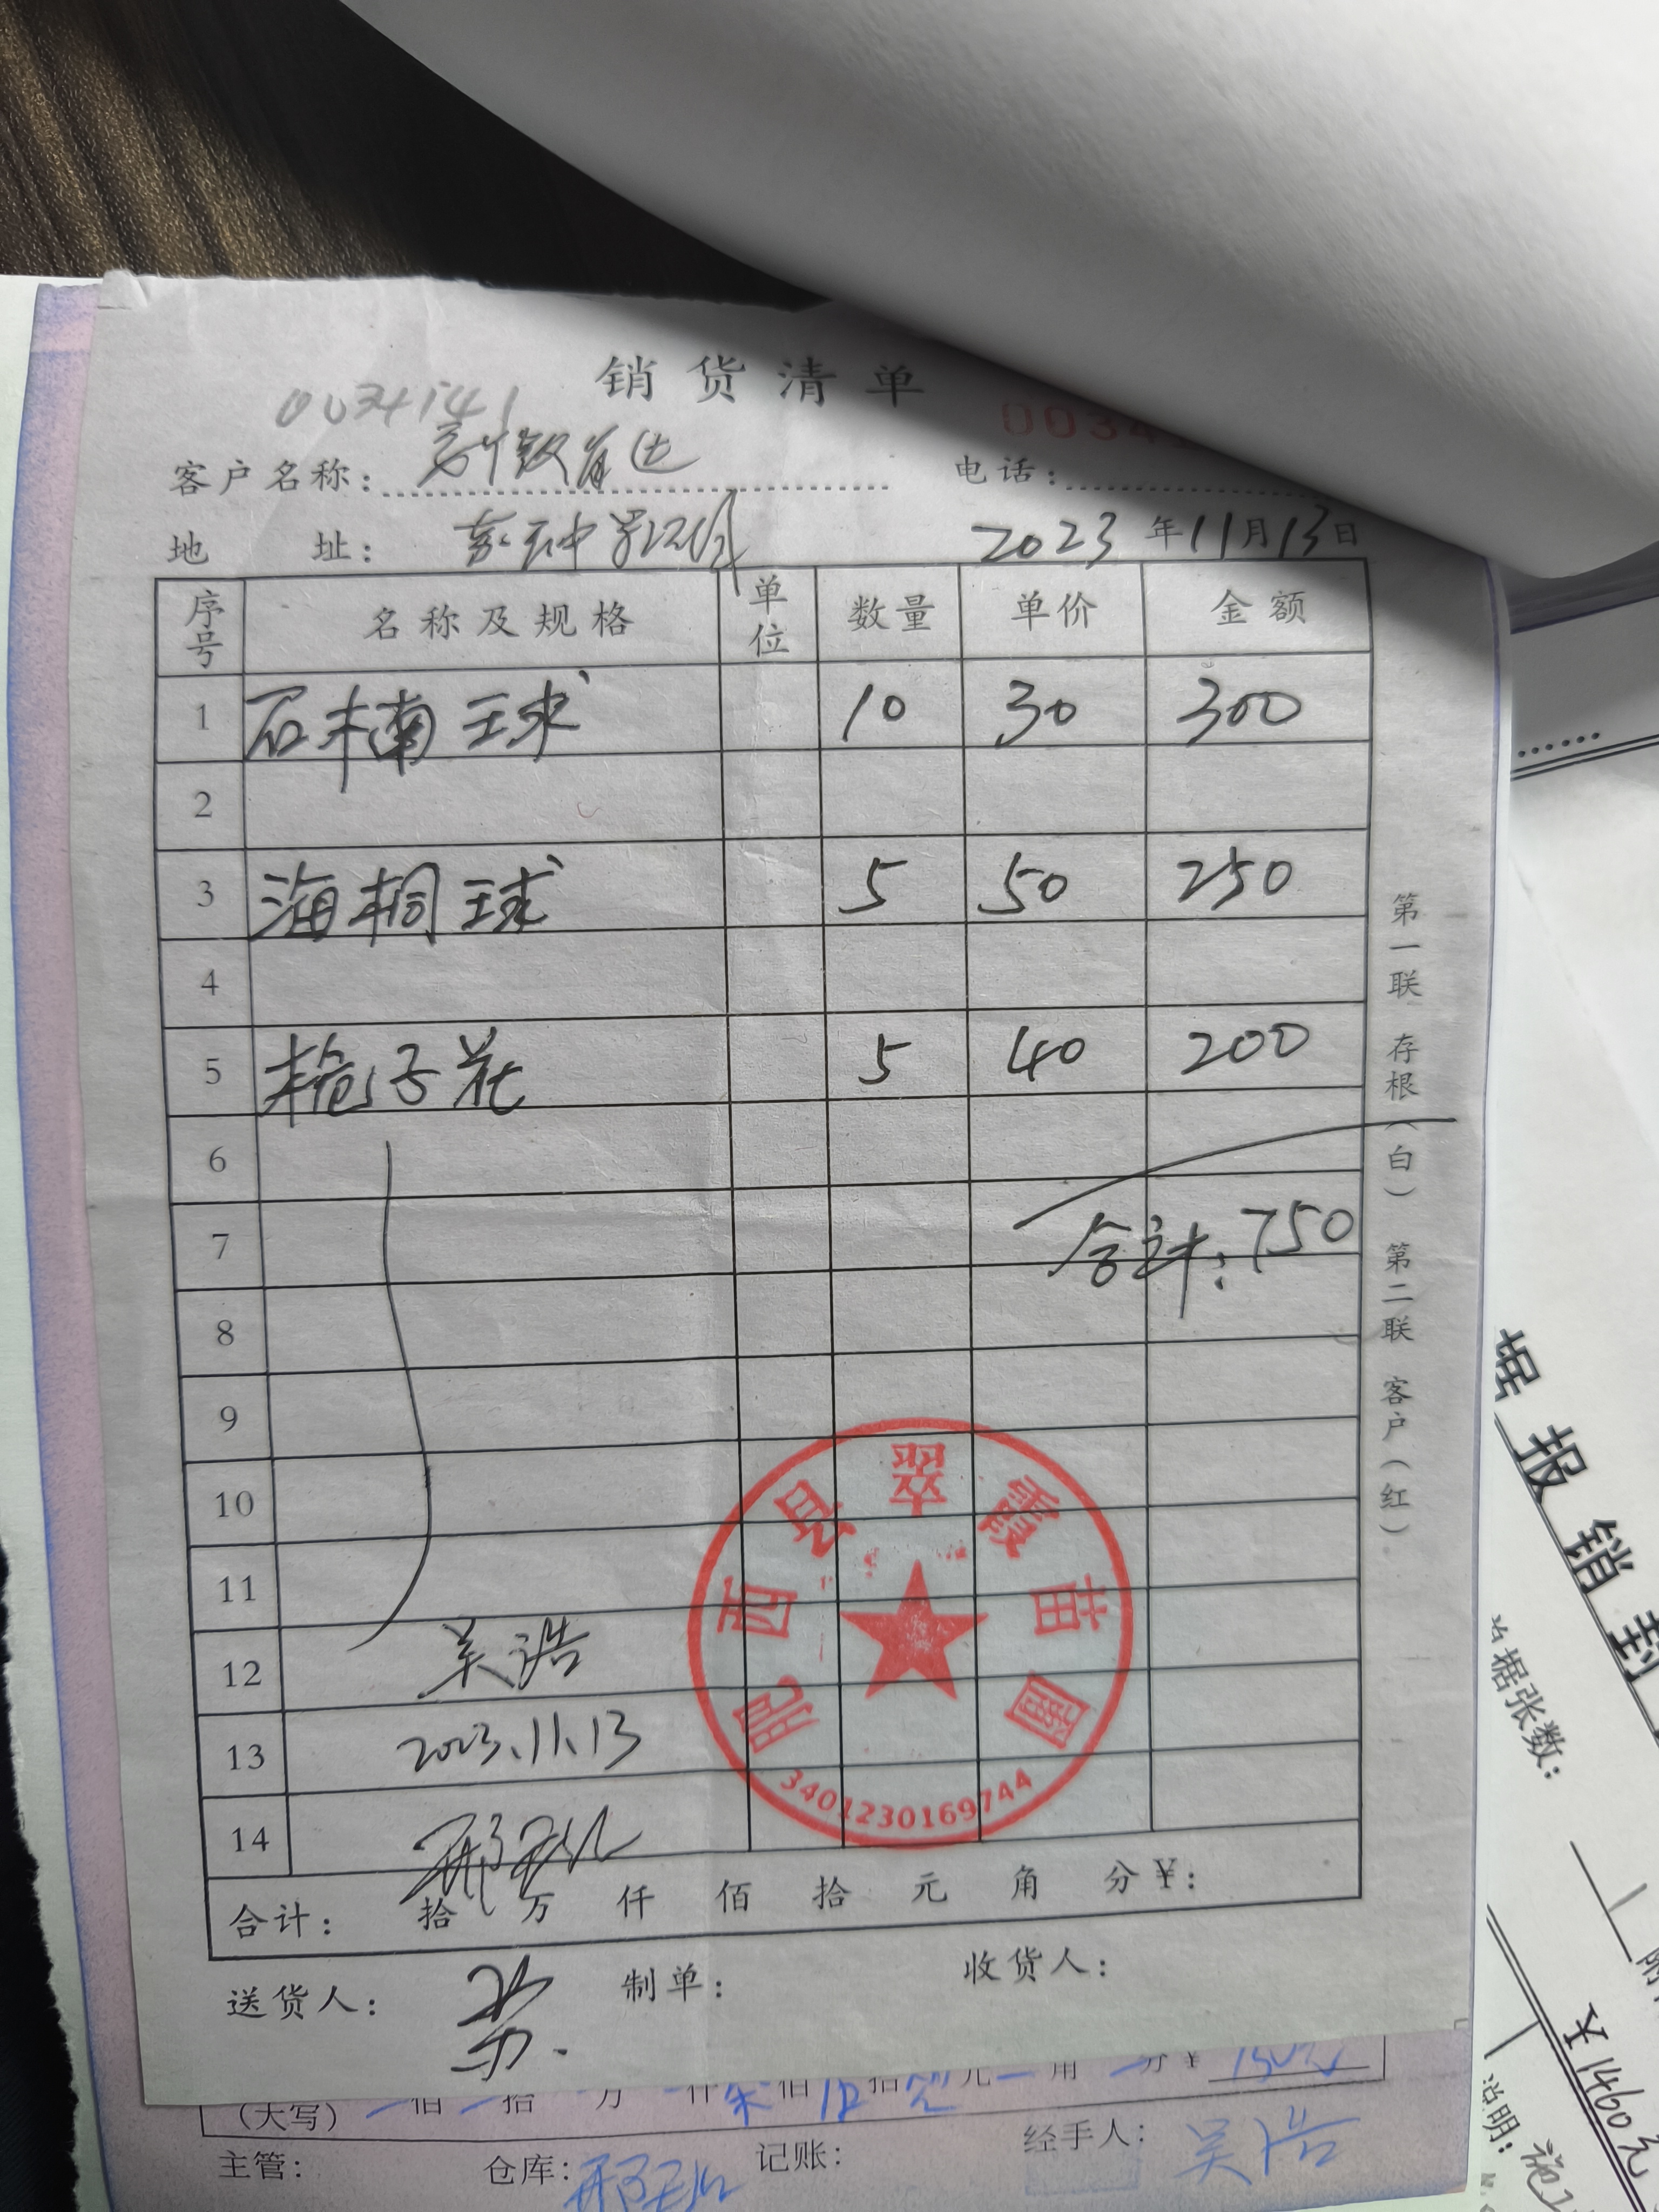 销货清单
0034141
0034
客户名称：
电话：
地 址：
2023年11月13日
序号 名称及规格 单位 数量 单价 金额
1 石楠球 10 30 300
2
3 海桐球 5 50 250
4
5 栀子花 5 40 200
6
7 合计：750
8
9
10
11
12 吴浩
13 2023.11.13
14
合计： 拾 万 仟 佰 拾 元 角 分￥：
送货人： 制单： 收货人：
第一联 存根（白） 第二联 客户（红）
肥西县翠霞苗圃
3401230169744
（大写） 佰 拾 万 仟 佰 拾 元 角 分￥
主管： 仓库： 记账： 经手人：吴浩
据报销封
单据张数：
附
￥1460元
说明：